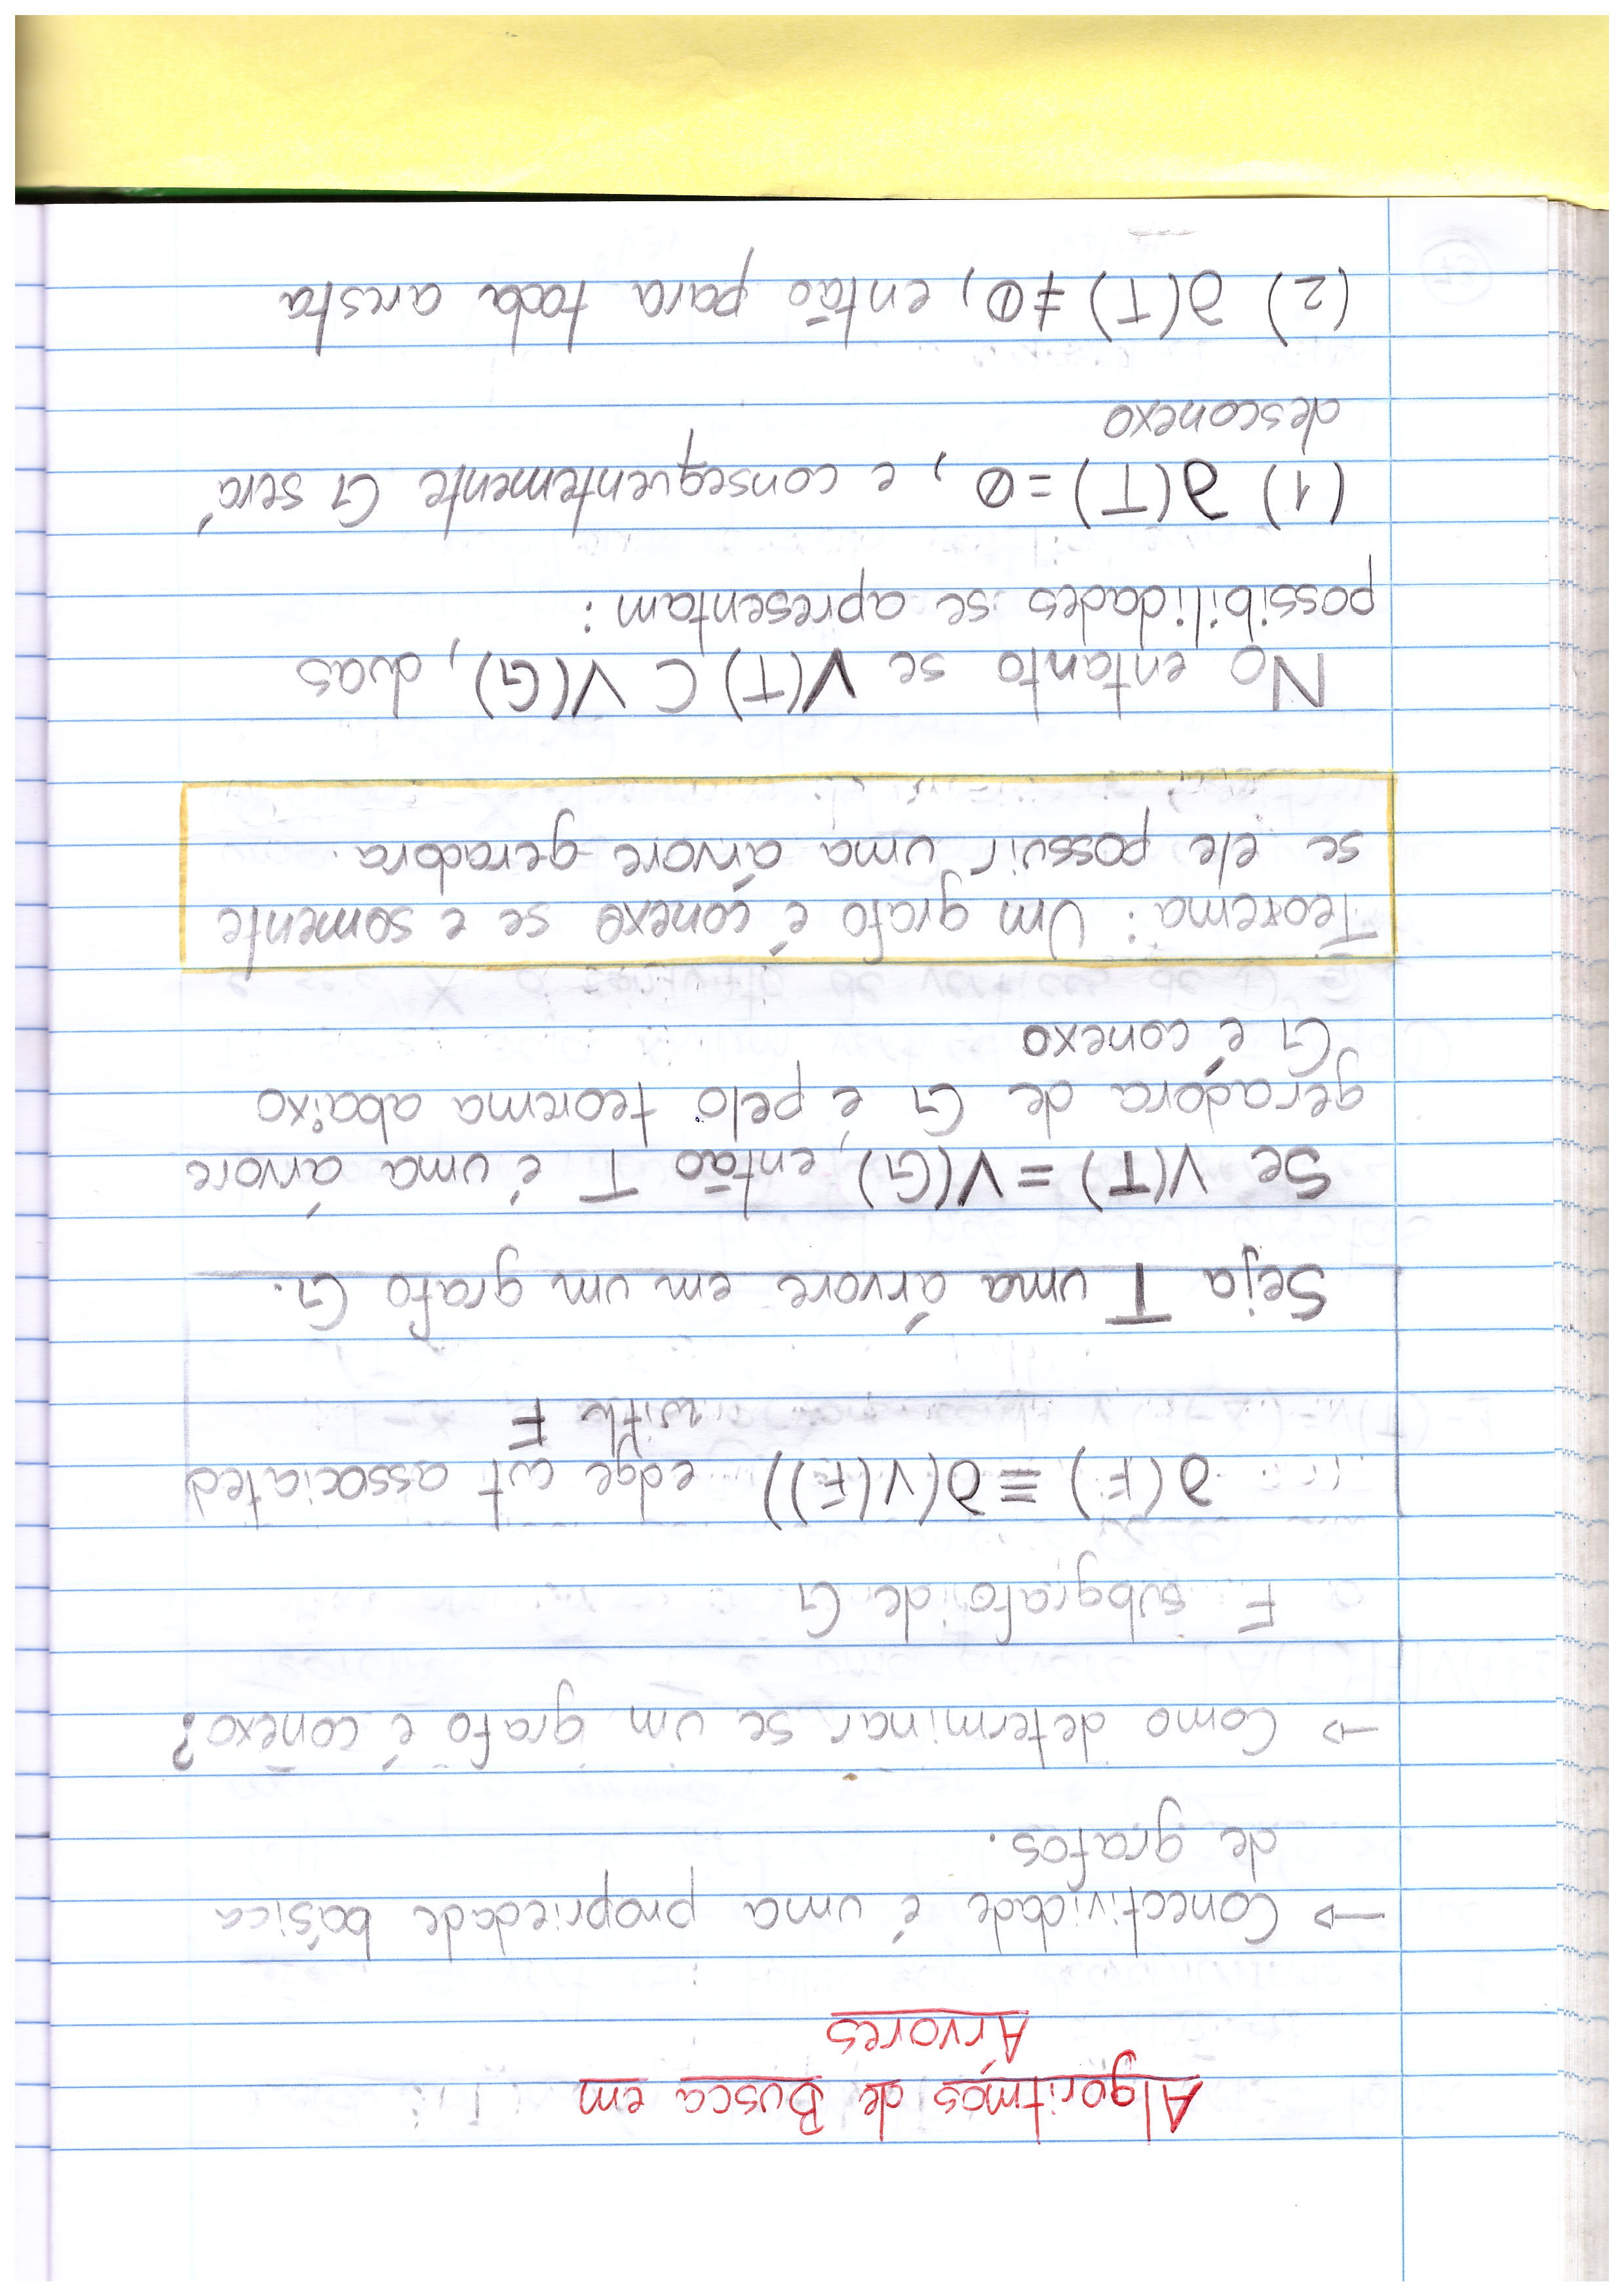 Algoritmos de Busca em
Árvores
→ Conectividade é uma propriedade básica
de grafos.
→ Como determinar se um grafo é conexo?
F subgrafo de G
∂(F) ≡ ∂(V(F)) edge cut associated
with F
Seja T uma árvore em um grafo G.
Se V(T) = V(G), então T é uma árvore
geradora de G e pelo teorema abaixo
G é conexo
Teorema: Um grafo é conexo se e somente
se ele possuir uma árvore geradora.
No entanto se V(T) ⊂ V(G), duas
possibilidades se apresentam:
(1) ∂(T) = ∅, e consequentemente G será
desconexo
(2) ∂(T) ≠ ∅, então para toda aresta